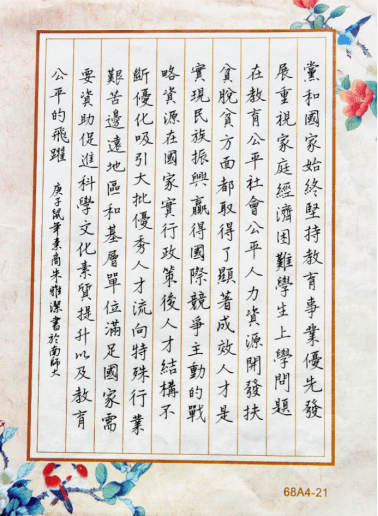 黨和國家始終堅持教育事業優先發
展重視家庭經濟困難學生上學問題
在教育公平社會公平人力資源開發扶
貧脫貧方面都取得了顯著成效人才是
實現民族振興贏得國際競爭主動的戰
略資源在國家實行政策後人才結構不
斷優化吸引大批優秀人才流向特殊行業
艱苦邊遠地區和基層單位滿足國家需
要資助促進科學文化素質提升以及教育
公平的飛躍
庚子鼠年 朱雅潔書於南師大
68A4-21